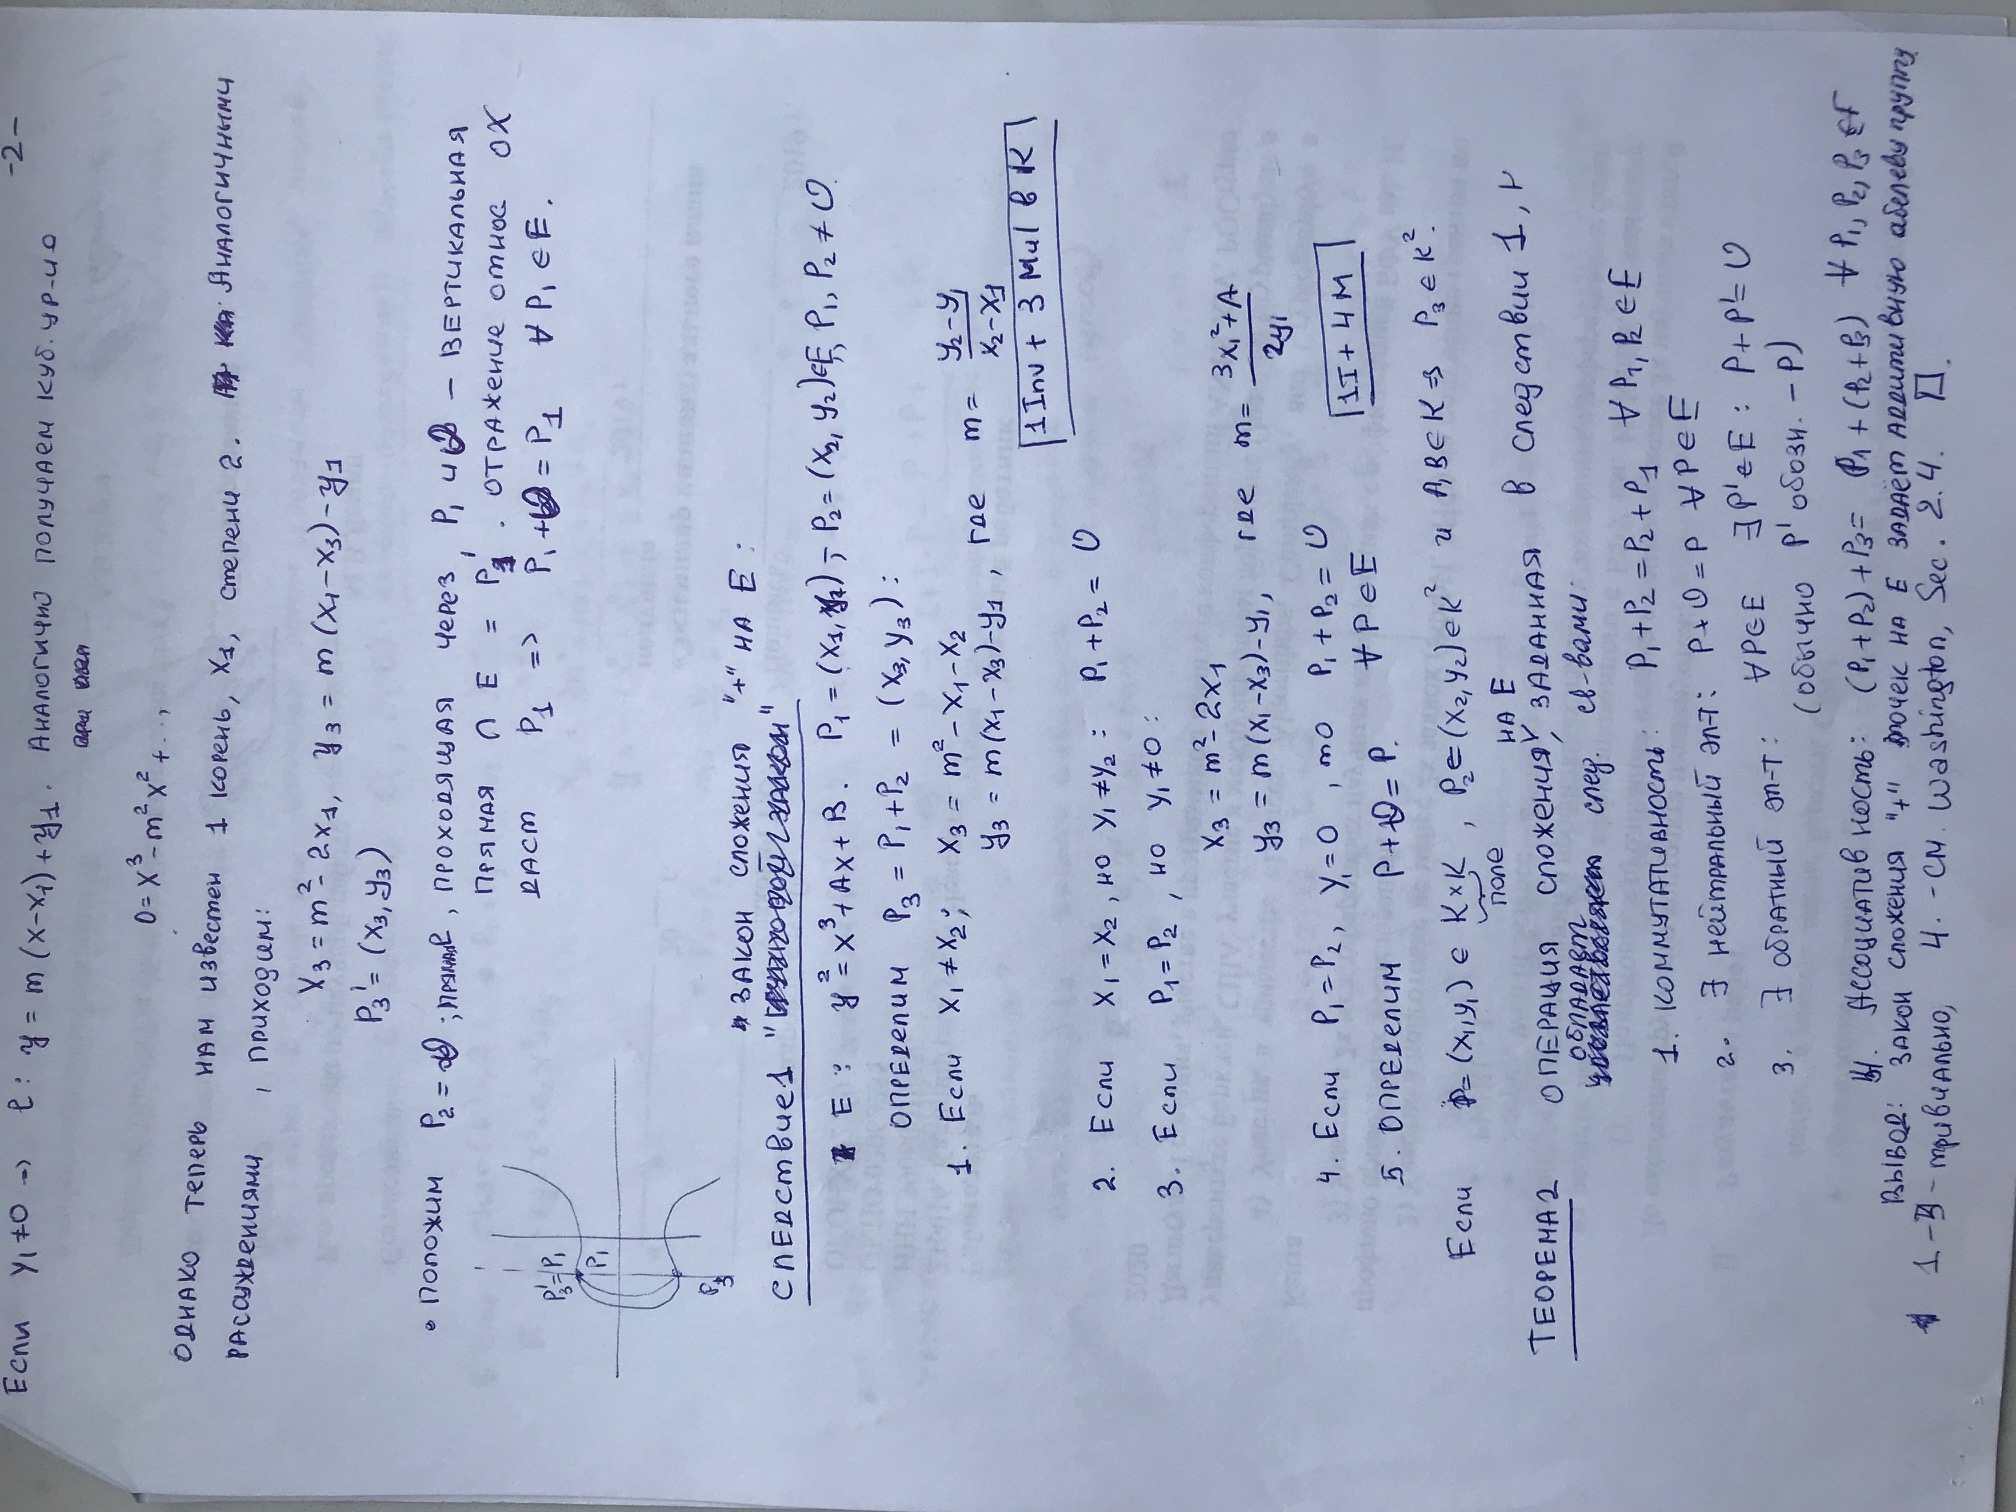 -2-
Если y₁≠0 → ℓ: y = m(x-x₁)+y₁. Аналогично получаем куб. ур-ио
0 = x³ - m²x² + ...,
однако теперь нам известен 1 корень, x₁, степени 2. Аналогичными
рассуждениями, приходим:
x₃ = m² - 2x₁, y₃ = m(x₁-x₃)-y₁
P₃' = (x₃, y₃)
• Положим P₂ = O; прямая, проходящая через P₁ и O - вертикальная
прямая ∩ E = P₁'. Отражение относ OX
даст P₁ => P₁+O = P₁ ∀ P₁ ∈ E.
P₃'=P₁
P₁
P₃
Следствие 1 "закон сложения "+" на E:
E: y² = x³ + Ax + B. P₁ = (x₁, y₁), P₂ = (x₂, y₂) ∈ E, P₁, P₂ ≠ O
определим P₃ = P₁ + P₂ = (x₃, y₃):
1. Если x₁ ≠ x₂; x₃ = m² - x₁ - x₂
y₃ = m(x₁ - x₃) - y₁, где m = (y₂-y₁)/(x₂-x₁)
1 Inv + 3 Mul в K
2. Если x₁ = x₂, но y₁ ≠ y₂: P₁ + P₂ = O
3. Если P₁ = P₂, но y₁ ≠ 0:
x₃ = m² - 2x₁
y₃ = m(x₁ - x₃) - y₁, где m = (3x₁² + A)/2y₁
4. Если P₁ = P₂, y₁ = 0, то P₁ + P₂ = O
1I + 4M
5. Определим P + O = P. ∀ P ∈ E
Если P = (x₁, y₁) ∈ K×K, P₂ ∈ (x₂, y₂) ∈ K² и A, B ∈ K => P₃ ∈ K².
поле
Теорема 2 операция сложения, заданная в следствии 1,
на E
обладает след. св-вами:
1. Коммутативность: P₁ + P₂ = P₂ + P₁ ∀ P₁, P₂ ∈ E
2. ∃ нейтральный эл-т: P + O = P ∀ P ∈ E
3. ∃ обратный эл-т: ∀ P ∈ E ∃ P' ∈ E: P + P' = O
(обычно P' обозн. -P)
4. Ассоциативность: (P₁ + P₂) + P₃ = P₁ + (P₂ + P₃) ∀ P₁, P₂, P₃ ∈ E
Вывод: закон сложения "+" точек на E задаёт аддитивную абелеву группу
1-3 - тривиально, 4. - см. Washington, Sec. 2.4. □